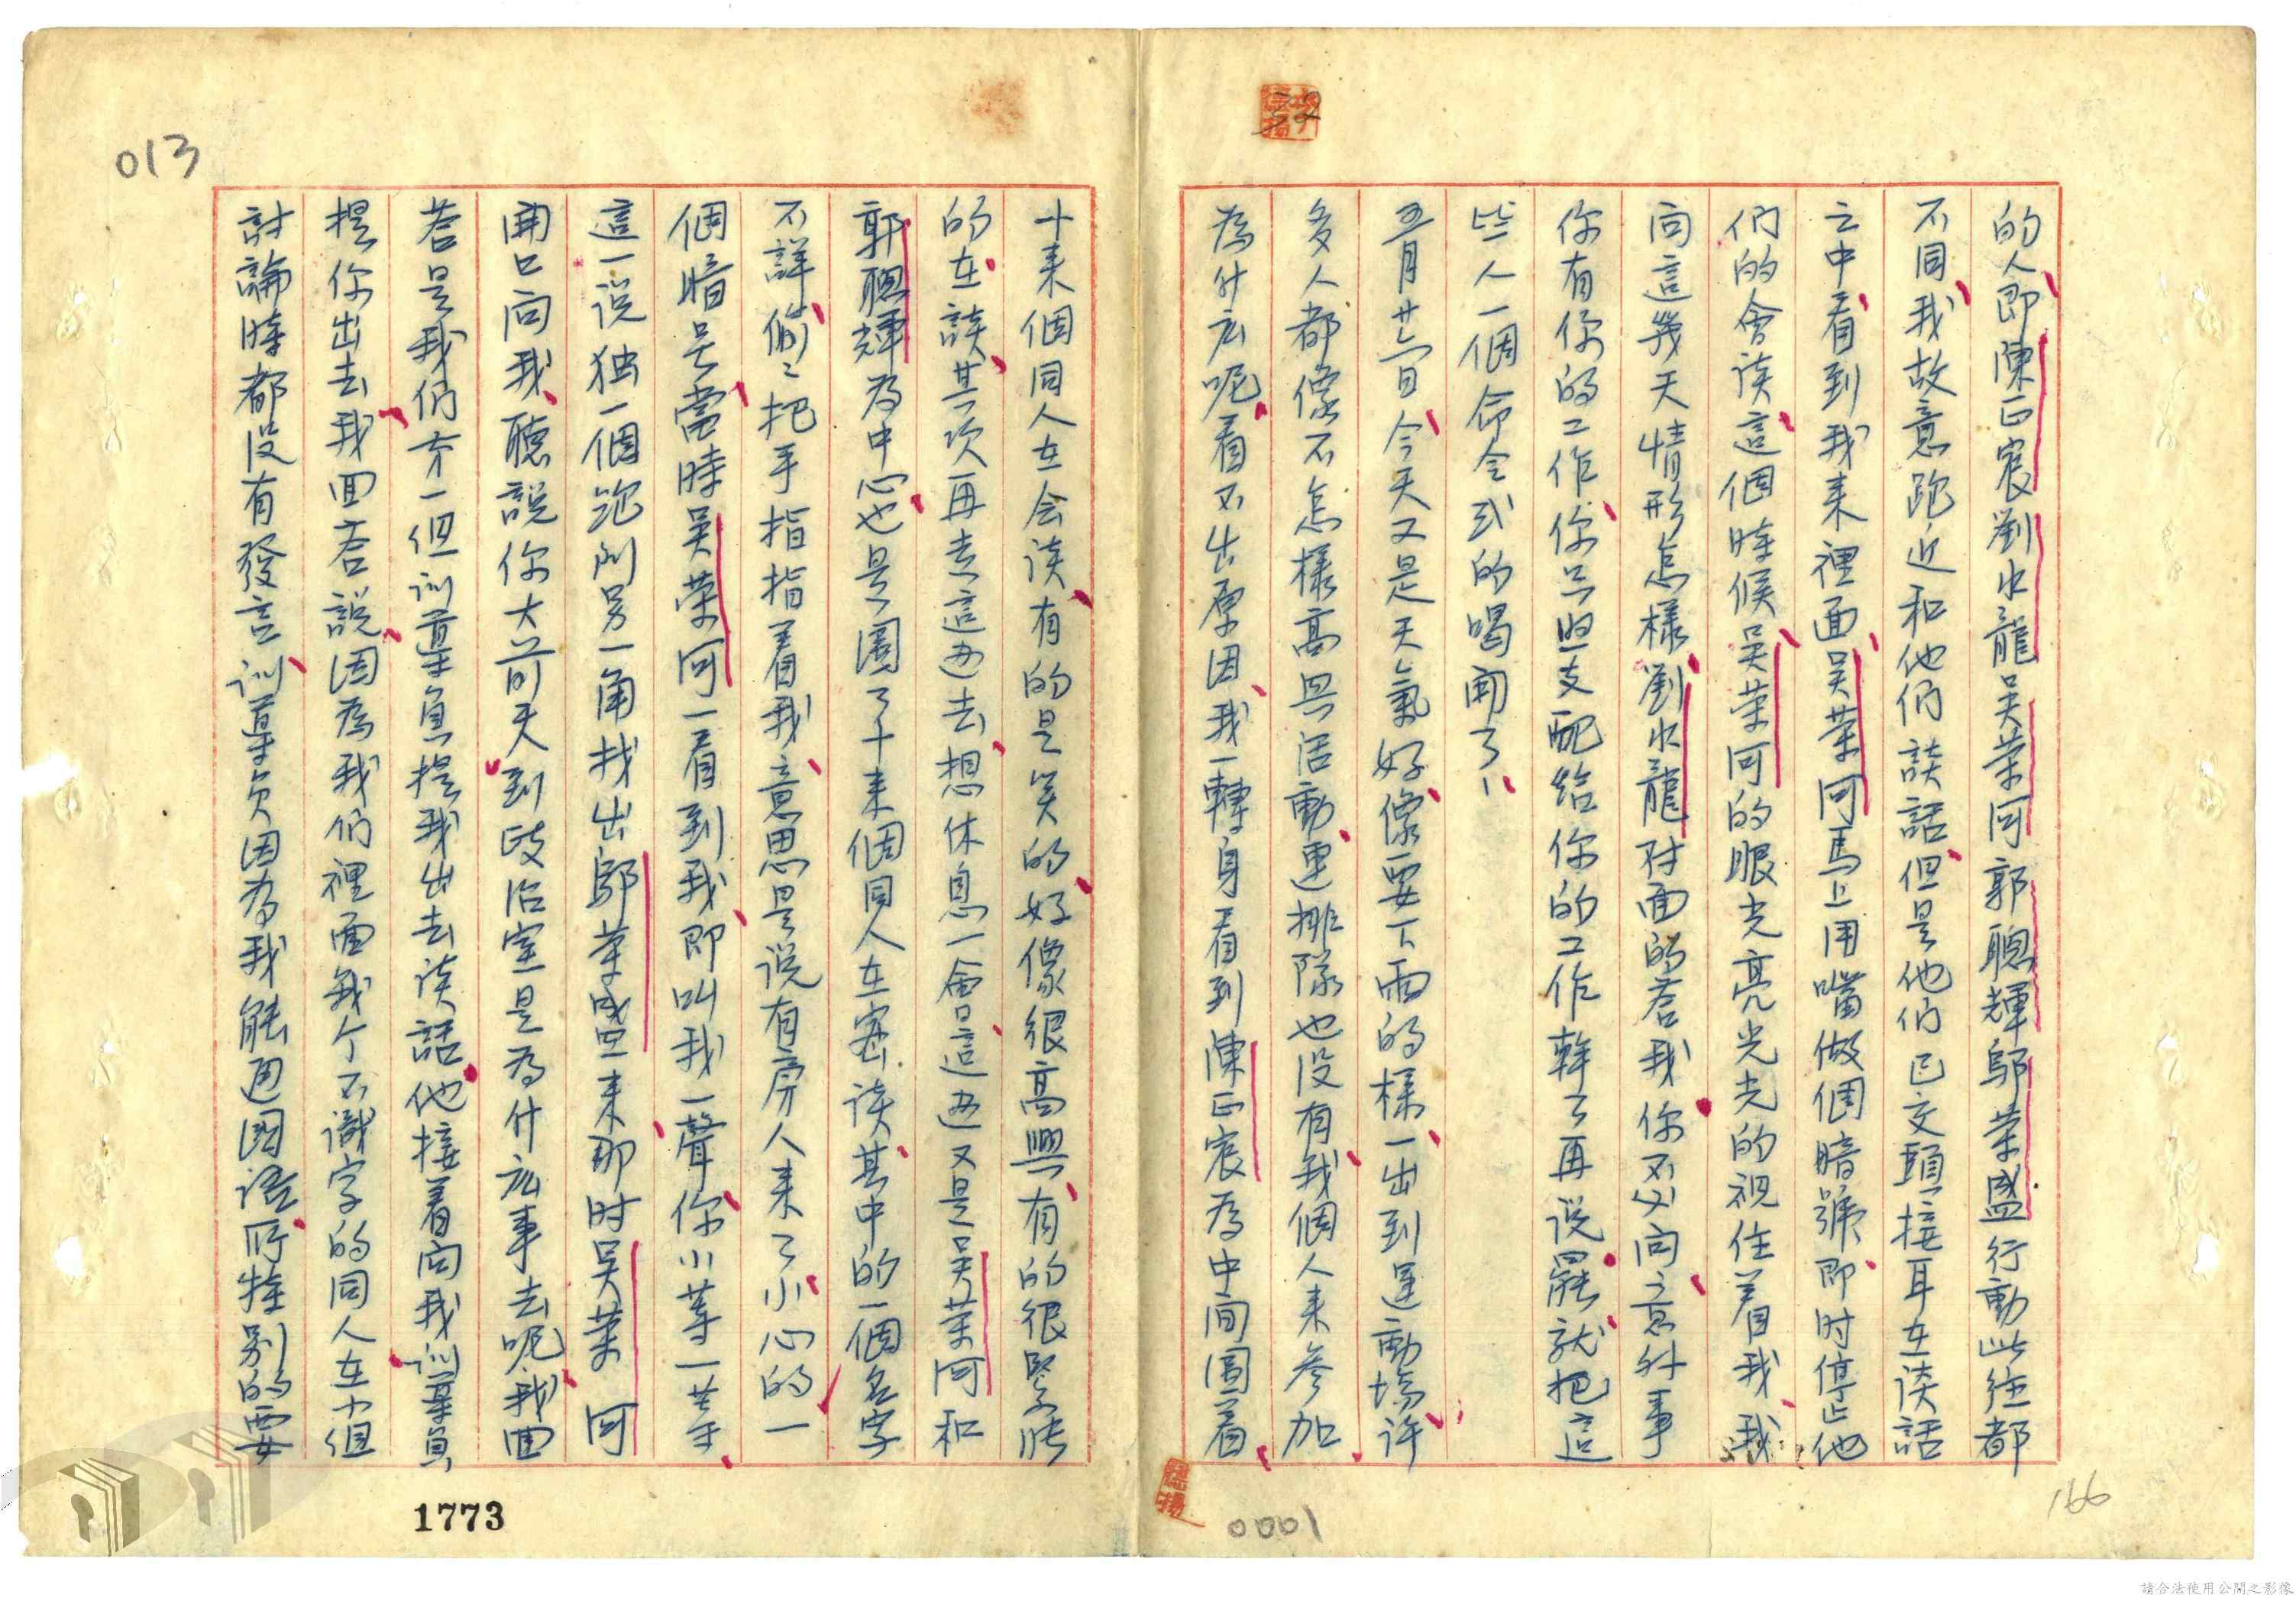 的人即陳正宸劉水龍吳榮河郭聰輝鄔榮盛行動此往都
不同我故意跑近和他們談話但是他們正交頭接耳在談話
之中看到我来裡面吳榮河馬上用嘴做個暗號即时停止他
們的會談這個時候吳榮河的眼光亮光光的視住着我我
问這幾天情形怎樣劉水龍对面的答我你不必问意外事
你有你的工作你只照支配给你的工作幹了再说罷就把這
些人一個命令式的喝開了
五月廿六日今天又是天氣好像要下雨的樣一出到運動場许
多人都像不怎樣高興活動連排隊也没有我個人来参加
為什么呢看不出原因我一轉身看到陳正宸為中间圍着
十来個同人在会談有的是笑的好像很高興有的很緊张
的在談其次再去這边去想休息一會這边又是吴荣河和
郭聰輝為中心也是圍了十来個同人在密談其中的一個名字
不詳偷々把手指指着我意思是说有房人来了小心的一
個暗号當時吴荣河一看到我即叫我一聲你小等一等
這一说独一個跑到另一角找出鄔荣盛来那时吴荣河
開口问我聽說你大前天到政治室是為什么事去呢我回
答是我们有一但训導員提我出去談話他接着问我训導員
提你出去我回答說因為我们裡面幾个不識字的同人在小组
討論時都没有發言训導员因為我能通國語所特别的要
013
1773
0001
166
請合法使用公開之影像